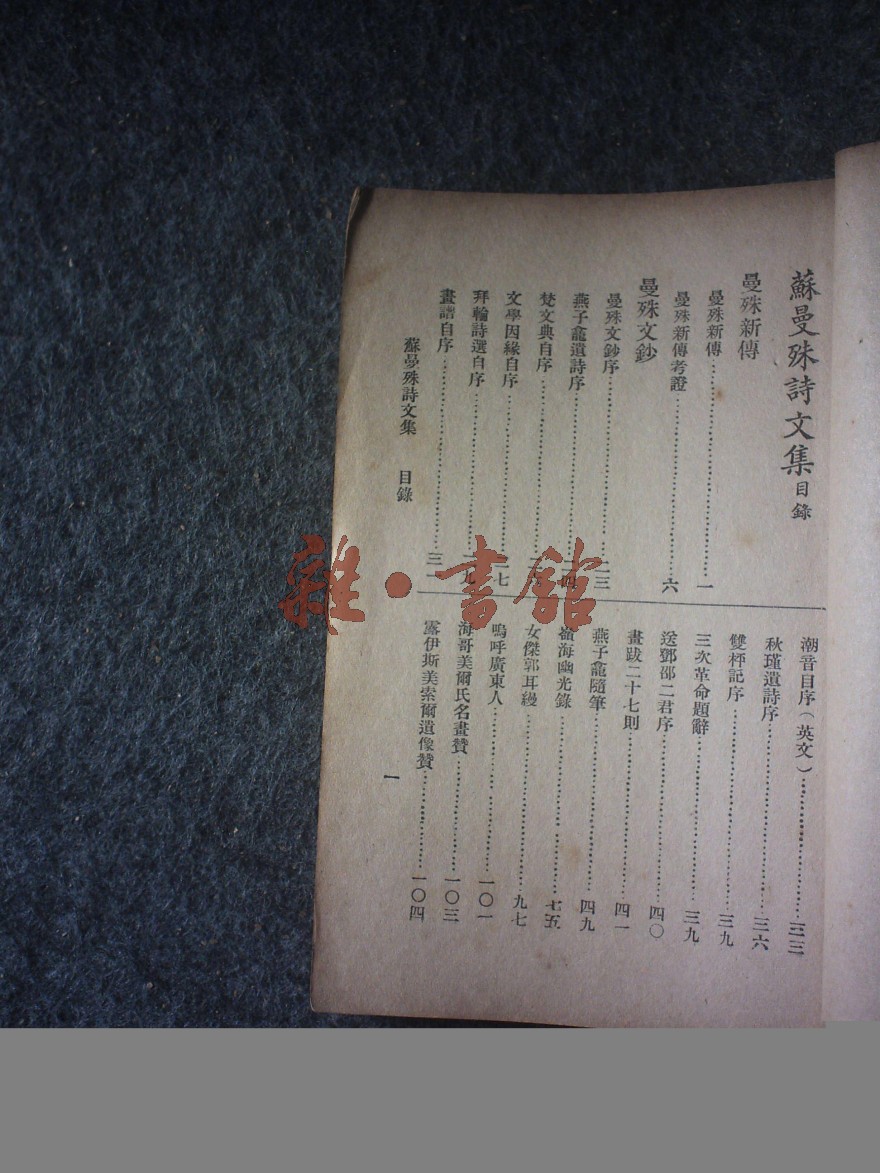 蘇曼殊詩文集目錄
曼殊新傳
曼殊新傳……一
曼殊新傳考證……六
曼殊文鈔
曼殊文鈔序……二三
燕子龕遺詩序
梵文典自序
文學因緣自序
拜輪詩選自序
畫譜自序……三一
潮音自序(英文)……三三
秋瑾遺詩序……三六
雙枰記序……三九
三次革命題辭……三九
送鄧邵二君序……四〇
畫跋二十七則……四一
燕子龕隨筆……四九
嶺海幽光錄……七五
女傑郭耳縵……九七
嗚呼廣東人……一〇一
海哥美爾氏名畫贊……一〇三
露伊斯美索爾遺像贊……一〇四
蘇曼殊詩文集 目錄
一
雜·書館